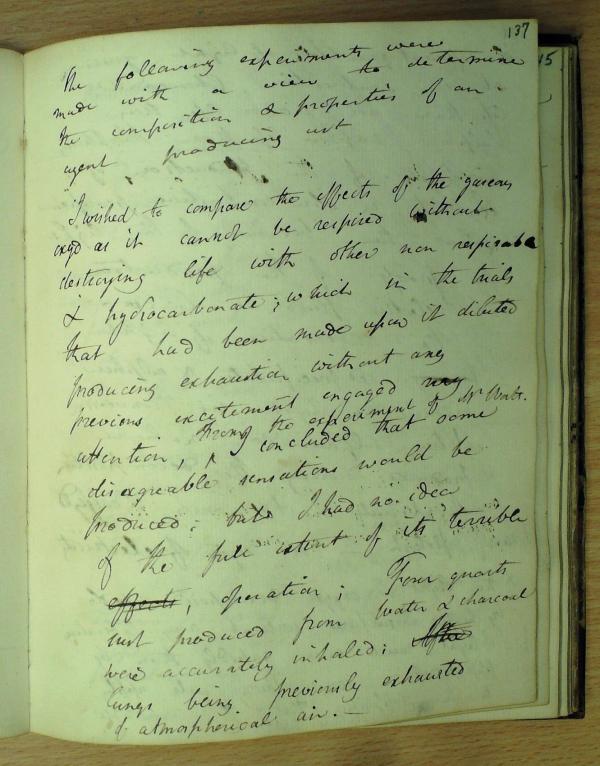 137
The following experiments were
made with a view to determine
the composition & properties of an
agent producing
I wished to compare the effects of the gaseous
oxyd as it cannot be respired without
destroying life with other non respirable
& hydrocarbonate; which in the trials
that had been made upon it diluted
producing exhaustion without any
previous excitement engaged my
from the experiment of Mr
attention, I concluded that some
disagreable sensations would be
produced; but I had no idea
of the full extent of its terrible
effects, operation; Four quarts
just produced from water & charcoal
were accurately inhaled; After
lungs being previously exhausted
of atmospherical air. —
15